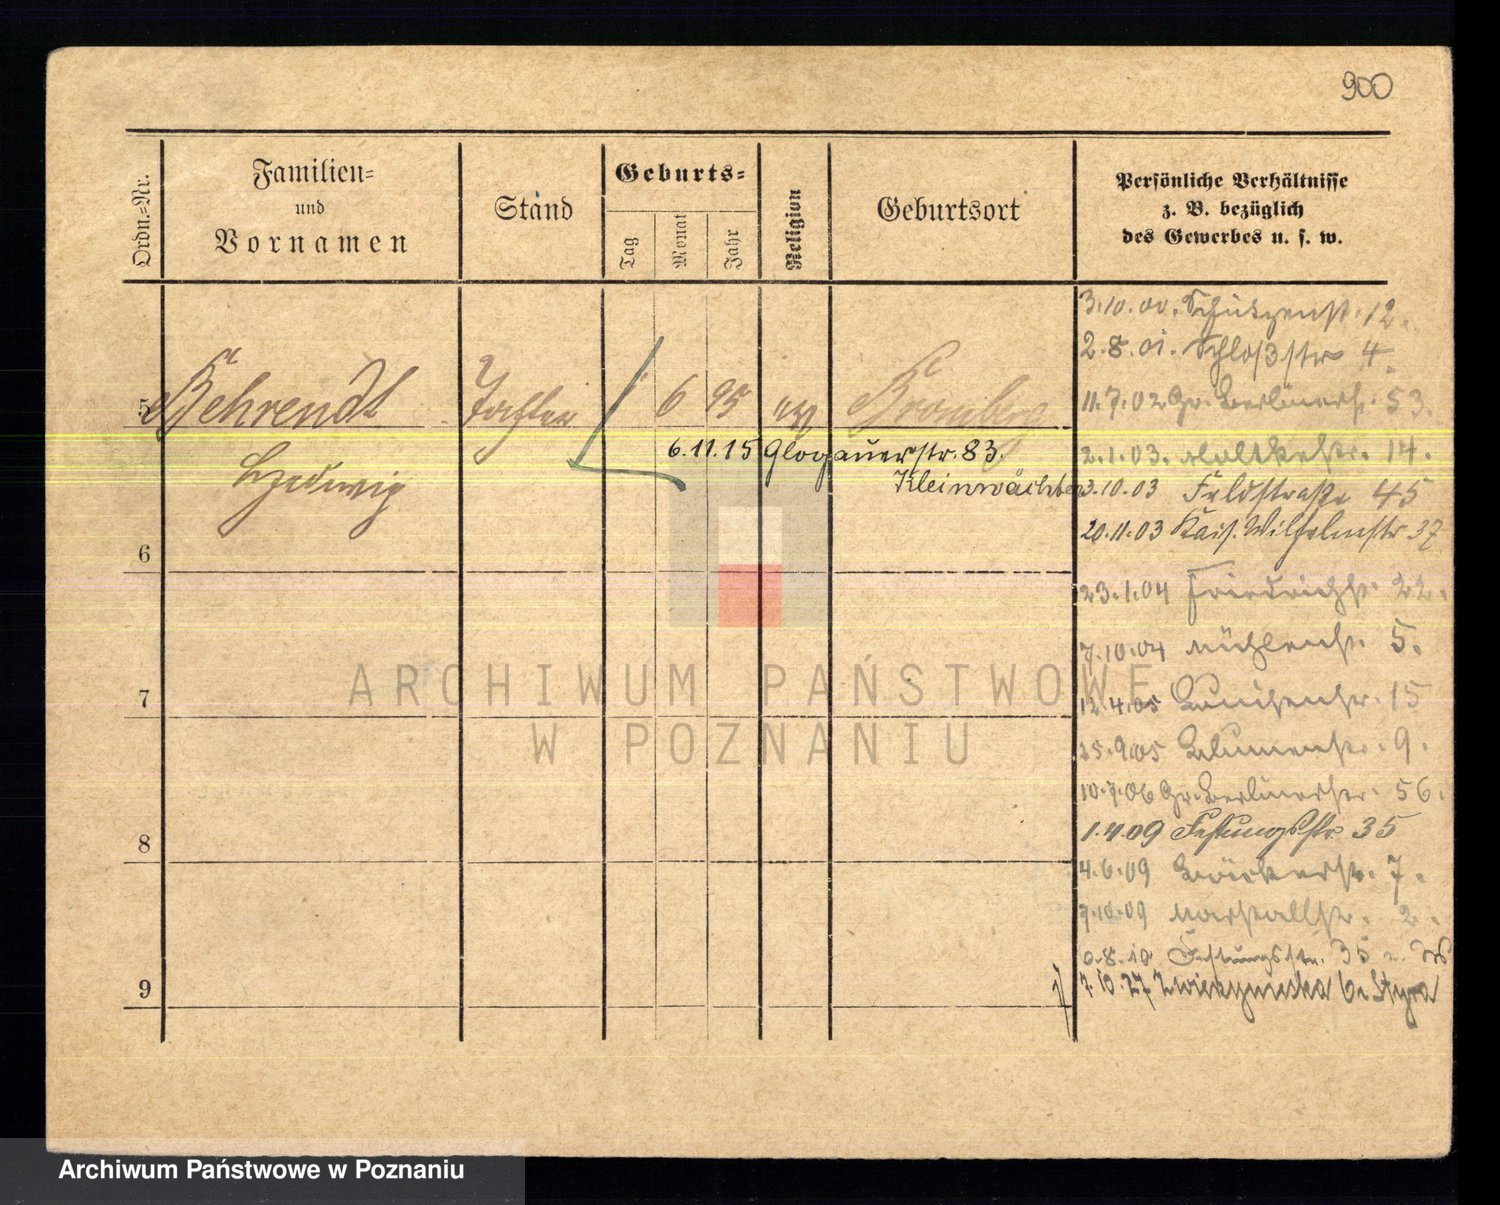 900
Ordn.=Nr.
Familien=
und
Vornamen
Stand
Geburts=
Tag
Monat
Jahr
Religion
Geburtsort
Persönliche Verhältnisse
z. B. bezüglich
des Gewerbes u. s. w.
5
Behrendt
Hedwig
Tochter
6
95
Bromberg
6.11.15 Glogauerstr. 83.
Kleinwächter
3.10.00. Schützenstr. 12.
2.8.01. Schloßstr 4.
11.7.02 Gr. Berlinerstr. 53.
2.1.03. Moltkestr. 14.
3.10.03 Feldstraße 45
20.11.03 Kais. Wilhelmstr 37
23.1.04 Friedrichstr. 22.
7.10.04 Mühlenstr. 5.
12.4.05 Luisenstr. 15
25.9.05 Blumenstr. 9.
10.7.06 Gr. Berlinerstr. 56.
1.4.09 Festungsstr. 35
4.6.09 Bäckerstr. 7.
7.10.09 Marstallstr. 2.
8.10 Festungsstr. 35
7.10.27
6
7
8
9
ARCHIWUM PAŃSTWOWE
W POZNANIU
Archiwum Państwowe w Poznaniu